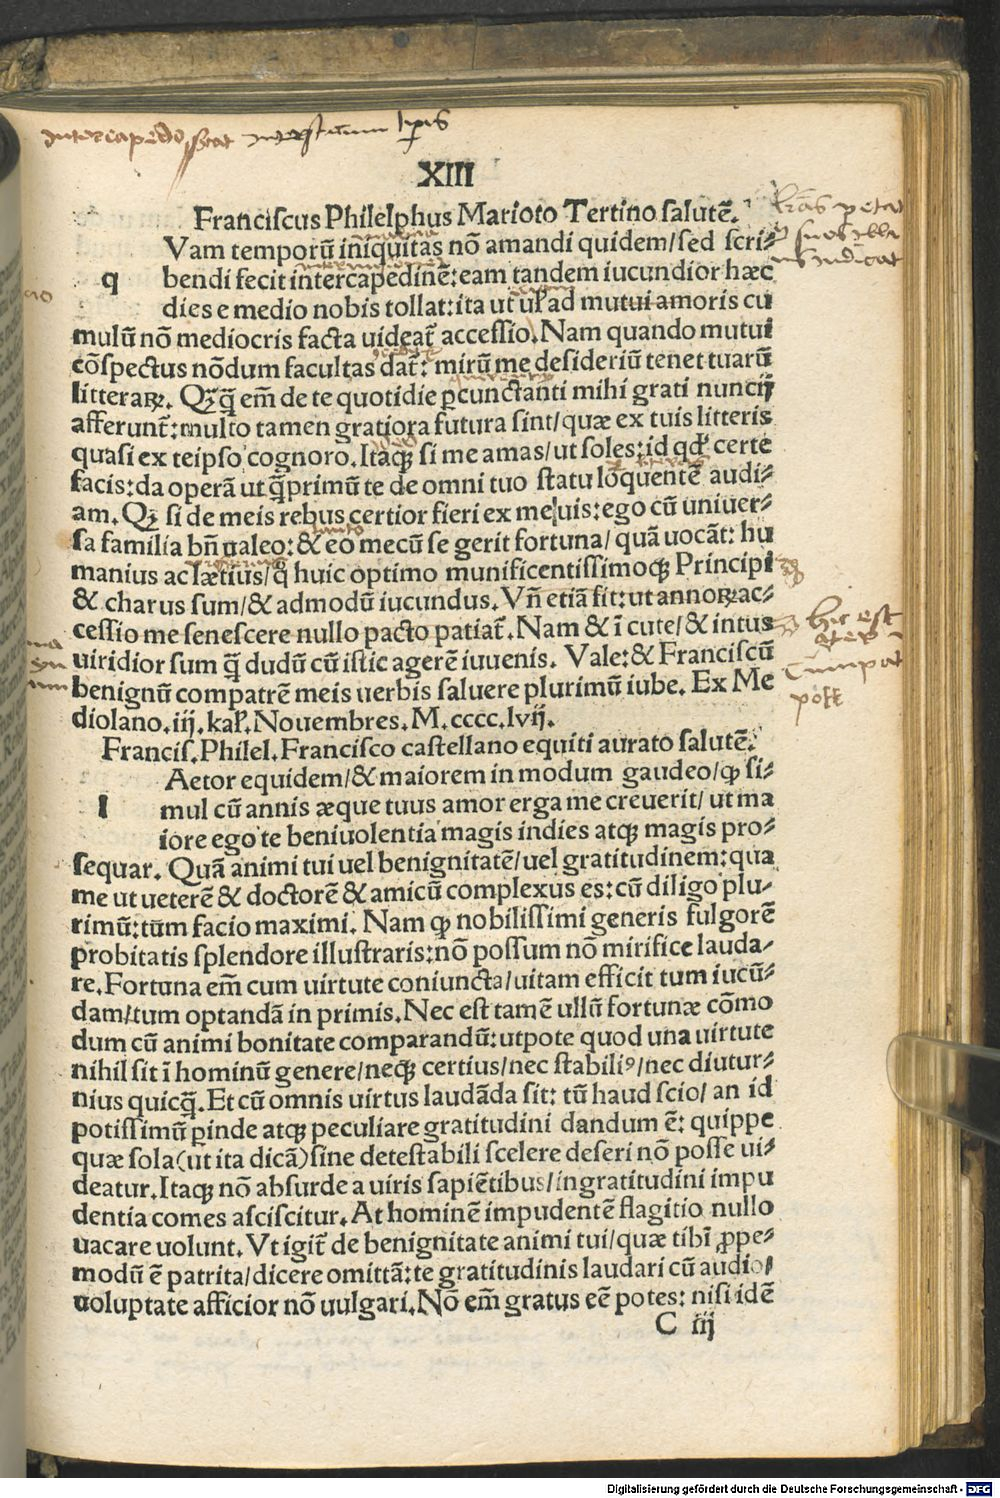 intercapedo
XIII
Franciscus Philelphus Marioto Tertino salutẽ.
Vam temporũ iniquitas nõ amandi quidem/sed scri⸗
q bendi fecit intercapedinẽ:eam tandem iucundior hæc
dies e medio nobis tollat:ita ut uel ad mutui amoris cu
mulũ nõ mediocris facta uideat̃ accessio.Nam quando mutui
cõspectus nõdum facultas dat̃: mirũ me desideriũ tenet tuarũ
litteraꝝ. Qꝫq̃ em̃ de te quotidie ꝑcunctanti mihi grati nuncij
afferunt̃:multo tamen gratiora futura sint/quæ ex tuis litteris
quasi ex teipso cognoro.Itaqꝫ si me amas/ut soles:id qđ certe
facis:da operã ut q̃primũ te de omni tuo statu loquentẽ audi⸗
am.Qꝫ si de meis rebus certior fieri ex me uis:ego cũ uniuer⸗
sa familia bñ ualeo:& eo mecũ se gerit fortuna/ quã uocãt: hu
manius ac lætius/q̃ huic optimo munificentissimoqꝫ Principi
& charus sum/& admodũ iucundus. Vñ etiã fit:ut annoꝝ ac⸗
cessio me senescere nullo pacto patiat̃.Nam & ĩ cute/& intus
uiridior sum q̃ dudũ cũ istic agerẽ iuuenis. Vale:& Franciscũ
benignũ compatrẽ meis uerbis saluere plurimũ iube. Ex Me
diolano.iij.kaƚ.Nouembres.M.cccc.lvij.
Francis.Philel.Francisco castellano equiti aurato salutẽ.
Aetor equidem/& maiorem in modum gaudeo/ꝙ si⸗
l mul cũ annis æque tuus amor erga me creuerit/ ut ma
iore ego te beniuolentia magis indies atqꝫ magis pro⸗
sequar. Quã animi tui uel benignitatẽ/uel gratitudinem:qua
me ut ueterẽ & doctorẽ & amicũ complexus es:cũ diligo plu⸗
rimũ:tum facio maximi. Nam ꝙ nobilissimi generis fulgorẽ
probitatis splendore illustraris:nõ possum nõ mirifice lauda⸗
re.Fortuna em̃ cum uirtute coniuncta/uitam efficit tum iucũ⸗
dam/tum optandã in primis.Nec est tamẽ ullũ fortunæ cõmo
dum cũ animi bonitate comparandũ:utpote quod una uirtute
nihil sit ĩ hominũ genere/neqꝫ certius/nec stabiliꝰ/nec diutur⸗
nius quicq̃.Et cũ omnis uirtus laudãda sit: tũ haud scio/ an id
potissimũ ꝑinde atqꝫ peculiare gratitudini dandum ẽ: quippe
quæ sola(ut ita dicã)sine detestabili scelere deseri nõ posse ui⸗
deatur.Itaqꝫ nõ absurde a uiris sapiẽtibus/ingratitudini impu
dentia comes asciscitur.At hominẽ impudentẽ flagitio nullo
uacare uolunt. Vt igit̃ de benignitate animi tui/quæ tibĩ ꝓpe⸗
modũ ẽ patrita/dicere omittã:te gratitudinis laudari cũ audio/
uoluptate afficior nõ uulgari.Nõ em̃ gratus eẽ potes: nisi idẽ
C iij
hic est
Digitalisierung gefördert durch die Deutsche Forschungsgemeinschaft - DFG